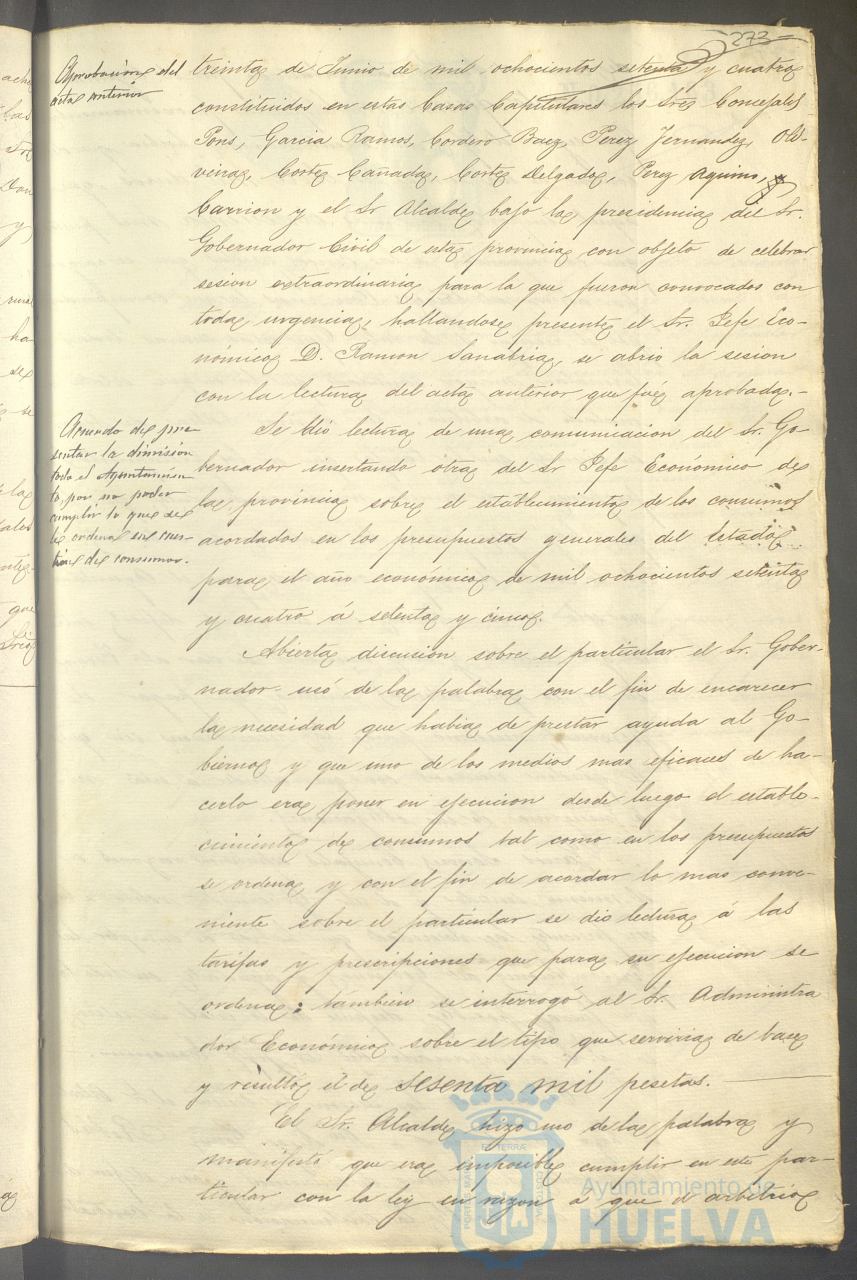 273
Aprobacion del
acta anterior
treinta de Junio de mil ochocientos setenta y cuatro
constituidos en estas Casas Capitulares los Sres Concejales
Pons, Garcia Ramos, Cordero Baez, Perez Fernandez, Oli-
veira, Cortes Cañada, Cortes Delgado, Perez Aquino, y
Carrion y el Sr Alcalde bajo la presidencia del Sr.
Gobernador Civil de esta provincia con objeto de celebrar
sesion extraordinaria para la que fueron convocados con
toda urgencia, hallandose presente el Sr. Jefe Eco-
nómico D. Ramon Sanabria, se abrio la sesion
con la lectura del acta anterior que fué aprobada.-
Acuerdo de pre-
sentar la dimision
todo el Ayuntamien-
to, por no poder
cumplir lo que se
le ordena en cues-
tion de consumos.
Se dió lectura de una comunicacion del Sr. Go-
bernador insertando otra del Sr Jefe Económico de
la provincia sobre el establecimiento de los consumos
acordados en los presupuestos generales del Estado
para el año económico de mil ochocientos setenta
y cuatro á setenta y cinco.
Abierta discusion sobre el particular el Sr. Gober-
nador usó de la palabra con el fin de encarecer
la necesidad que habia de prestar ayuda al Go-
bierno y que uno de los medios mas eficaces de ha-
cerlo era poner en ejecucion desde luego el estable-
cimiento de consumos tal como en los presupuestos
se ordena y con el fin de acordar lo mas conve-
niente sobre el particular se dio lectura á las
tarifas y prescripciones que para su ejecucion se
ordena; tambien se interrogó al Sr. Administra
dor Económico sobre el tipo que serviria de base
y resultó el de sesenta mil pesetas.
El Sr. Alcalde hizo uso de la palabra y
manifestó que era imposible cumplir en este par-
ticular con la ley en razon a que el arbitrio
Ayuntamiento de
HUELVA